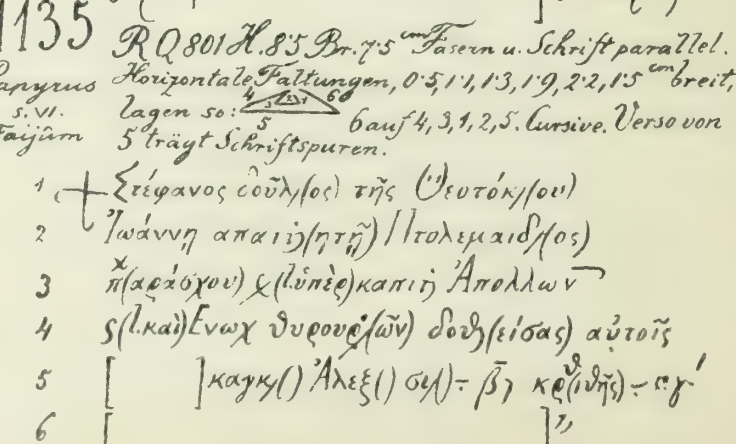 1135 R Q 801 H. 8·5 Br. 7·5 cm Fasern u. Schrift parallel.
Papyrus Horizontale Faltungen, 0·5, 1·1, 1·3, 1·9, 2·2, 1·5 cm breit,
s. VI. lagen so: 4 3 2 1 6 5 6 auf 4, 3, 1, 2, 5. Cursive. Verso von
Faijûm 5 trägt Schriftspuren.
1 Στέφανος δοῦλ(ος) τῆς Θεοτόκ(ου)
2 Ἰωάννῃ ἀπαιτ(ητῇ) Πτολεμαιδ(ος)
3 π(αράσχου) (l. ὑπὲρ) καπιτ Ἀπολλων
4 ς (l. καὶ) Ενωχ θυρουρ(ῶν) δοθ(είσας) αὐτοῖς
5 [ ] καγκ( ) Ἀλεξ( ) σι( ) κρ(ιθῆς)
6 [ ]